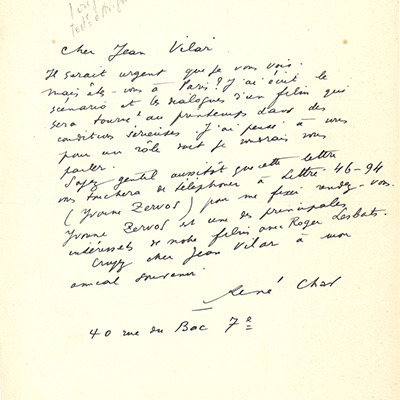 Cher Jean Vilar
Il serait urgent que je vous vois.
mais êtes-vous à Paris? J'ai écrit le
scénario et les dialogues d'un film qui
sera tourné au printemps dans des
conditions sérieuses. J'ai pensé à vous
pour un rôle dont je voudrais vous
parler.
Soyez gentil aussitôt que cette lettre
vous touchera de téléphoner à Littré-46-94
(Yvonne Zervos) pour me fixer rendez-vous.
Yvonne Zervos est une des principales
intéressées de notre film avec Roger
Croyez cher Jean Vilar à mon
amical souvenir.
René Char
40 rue du Bac 7e